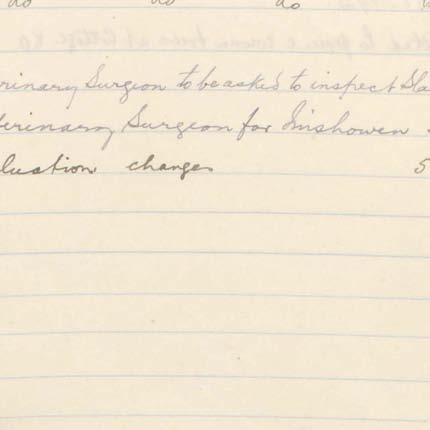 do do do
rinary Surgeon to be asked to inspect Sla
erinary Surgeon for Inishowen
luation changes 5